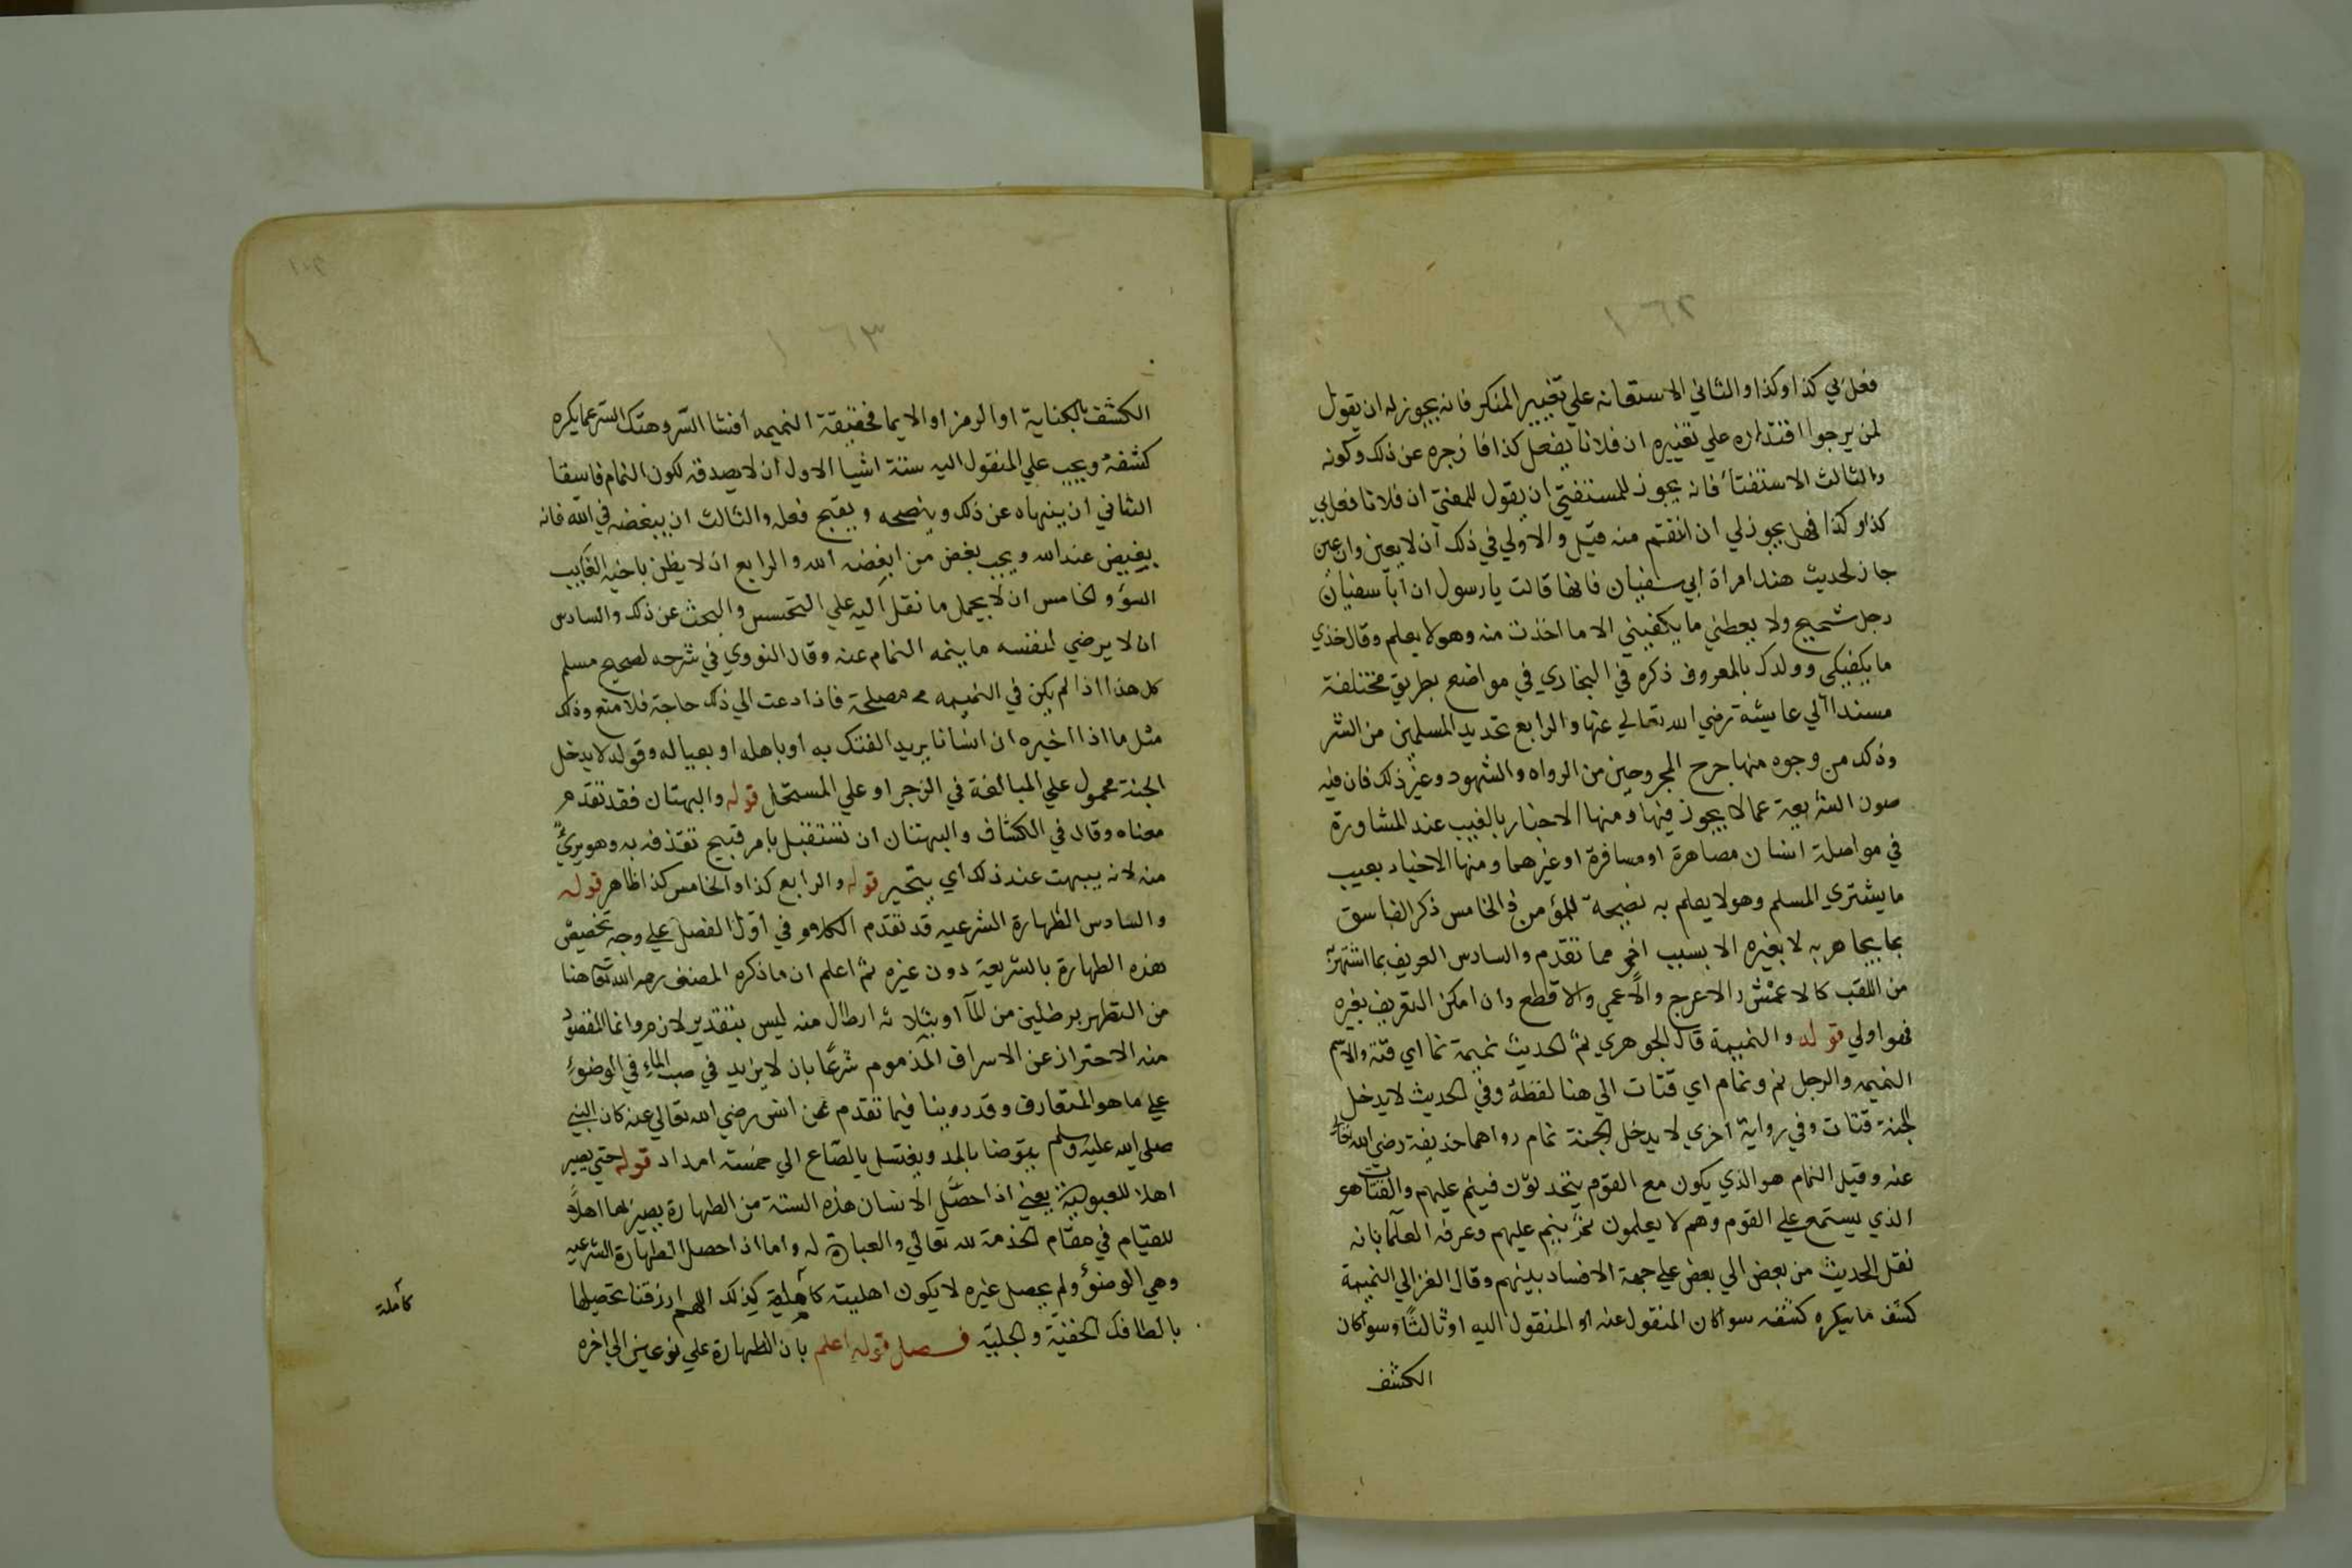 ١٦٢
فعل بي كذا وكذا والثاني الاستعانه علي تغيير المنكر فانه يجوز له ان يقول
لمن يرجوا اقتداره علي تغييره ان فلانا يفعل كذا فازجره عن ذلك وكونه
والثالث الاستفتاء فانه يجوز للمستفتي ان يقول للمفتي ان فلانا فعل بي
كذا وكذا فهل يجوز لي ان انتقم منه قيل والاولي في ذلك ان لا يعين وان عين
جاز لحديث هند امراة ابي سفيان فانها قالت يا رسول ان ابا سفيان
رجل شحيح ولا يعطني ما يكفيني الا ما اخذت منه وهو لا يعلم وقال خذي
ما يكفيكي وولدك بالمعروف ذكره في البخاري في مواضع بطريق مختلفة
مسندا الي عايشة رضي الله تعالي عنها والرابع تحديد المسلمين من الشر
وذلك من وجوه منها جرح المجروحين من الرواه والشهود وغير ذلك فان فيه
صون الشريعة عما لا يجوز فيها ومنها الاخبار بالغيب عند المشاورة
في مواصلة انسان مصاهرة او مسافرة او غيرهما ومنها الاخبار بعيب
ما يشتري المسلم وهو لا يعلم به نصيحة للمؤمن والخامس ذكر الفاسق
بما يجاهر به لا بغيره الا بسبب اخر مما تقدم والسادس التعريف بما اشتهر به
من اللقب كالاعمش والاعرج والاعمي والاقطع وان امكن التعريف بغيره
فهو اولي قوله والنميمة قال الجوهري نم الحديث نميمة نما اي قته والاسم
النميمه والرجل نم ونمام اي قتات الي هنا لفظه وفي الحديث لا يدخل
الجنة قتات وفي رواية اخري لا يدخل الجنة نمام رواهما حذيفة رضي الله تعالي
عنه وقيل النمام هو الذي يكون مع القوم يتحدثون فينم عليهم والقتات هو
الذي يستمع علي القوم وهم لا يعلمون ثم ينم عليهم وعرفه العلما بانه
نقل الحديث من بعض الي بعض علي جهة الافساد بينهم وقال الغزالي النميمة
كشف ما يكره كشفه سوا كان المنقول عنه او المنقول اليه او ثالثا وسوا كان
الكشف
١٦٣
الكشف بالكناية او الرمز او الايما فحقيقة النميمه افشا السر وهتك الستر عما يكره
كشفه ويجب علي المنقول اليه ستة اشيا الاول ان لا يصدقه لكون النمام فاسقا
الثاني ان ينهاه عن ذلك وينصحه ويقبح فعله والثالث ان يبغضه في الله فانه
بغيض عند الله ويجب بغض من ابغضه الله والرابع ان لا يظن باخيه الغايب
السوء والخامس ان لا يحمل ما نقل اليه علي التحسس والبحث عن ذلك والسادس
ان لا يرضي لنفسه ما ينمه النمام عنه وقال النووي في شرحه لصحيح مسلم
كل هذا اذا لم يكن في النميمه مصلحة فاذا دعت الي ذلك حاجة فلا منع وذلك
مثل ما اذا اخبره ان انسانا يريد الفتك به او باهله او بعياله وقوله لا يدخل
الجنة محمول علي المبالغة في الزجر او علي المستحل قوله والبهتان فقد تقدم
معناه وقال في الكشاف والبهتان ان تستقبل بامر قبيح تقذفه به وهو بريء
منه لانه يبهت عند ذلك اي يتحير قوله والرابع كذا والخامس كذا ظاهر قوله
والسادس الطهارة الشرعيه قد تقدم الكلام في اول الفصل علي وجه تخصيص
هذه الطهارة بالشريعة دون غيره ثم اعلم ان ما ذكره المصنف رحمه الله تعا هنا
من التطهر برطلين من الما او بثلاثه ارطال منه ليس بتقدير لازم وانما المقصود
منه الاحتراز عن الاسراف المذموم شرعا بان لا يزيد في صب الماء في الوضوء
علي ما هو المتعارف وقد روينا فيما تقدم عن انس رضي الله تعالي عنه كان النبي
صلي الله عليه وسلم يتوضا بالمد ويغتسل بالصاع الي خمسة امداد قوله حتي يصير
اهلا للعبودية يعني اذا حصل الانسان هذه الستة من الطهارة يصير بها اهلا
للقيام في مقام الخدمة لله تعالي والعبادة له واما اذا حصل الطهارة الشرعيه
وهي الوضوء ولم يحصل غيره لا يكون اهليته كاهلية كذلك اللهم ارزقنا تحصيلها
بالطافك الخفية والجلية فصل قوله اعلم بان الطهارة علي نوعين الي اخره
كاملة